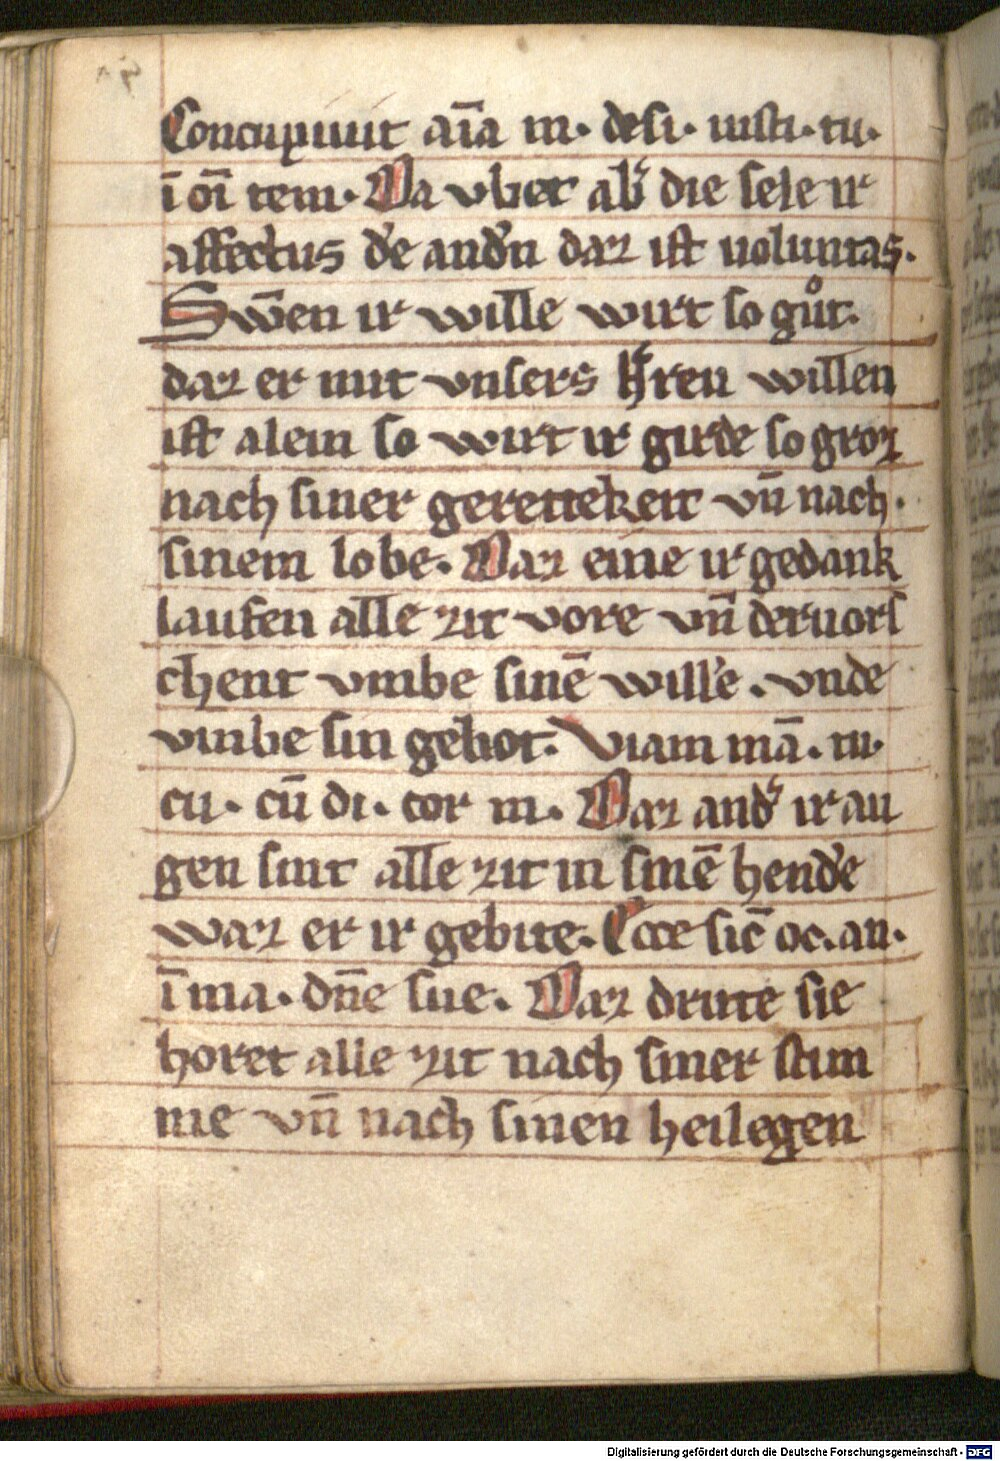 Concupiuit aīa m. desi. iusti. tu.
ī oī tem. Da vbet ab͛ die sele ir
affectus d͛e and͛n daz ist uoluntas.
Swēen ir wille wirt so gůt.
daz er mit vnsers h͛ren willen
ist alein so wirt ir girde so groz
nach siner gerettekeit vn̄ nach.
sinem lobe. Daz eine ir gedank
laufen alle zit vore vn̄ deruors
chent vmbe sinē wille. vnde
vmbe sin gebot. Viam mā. tu.
cu. cū di. cor m. Daz and͛ ir au
gen sint alle zit in sinē hende
waz er ir gebite. Ecce sic̄ oc. an.
ī ma. dn̄e sue. Daz drite sie
horet alle zit nach siner stim
me vn̄ nach sinen heilegen
Digitalisierung gefördert durch die Deutsche Forschungsgemeinschaft - DFG